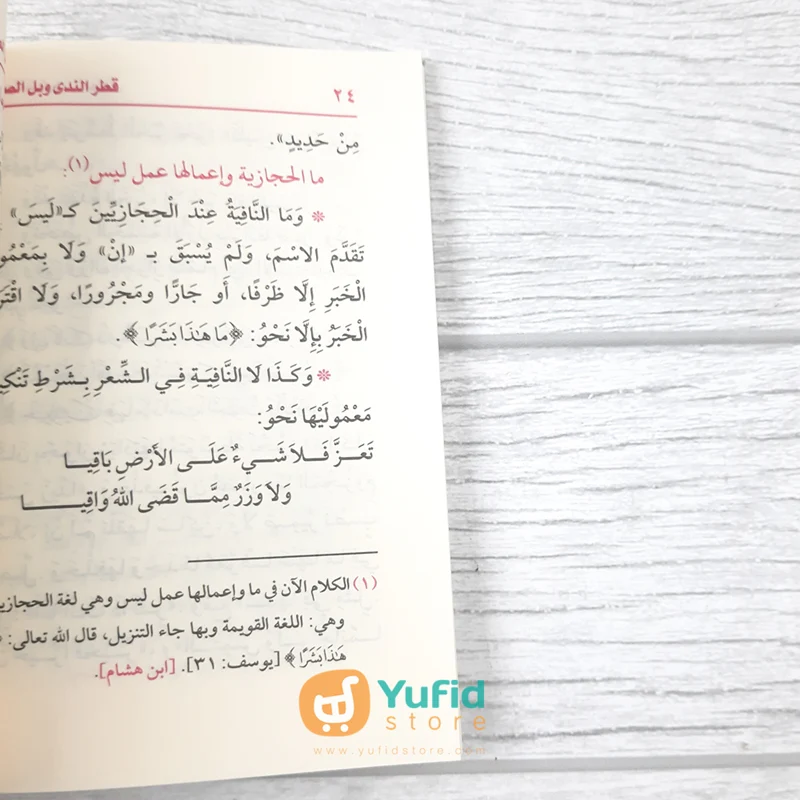 ٢٤
قطر الندى وبل
مِنْ حَدِيدٍ».
ما الحجازية وإعمالها عمل ليس(١):
* وَمَا النَّافِيَةُ عِنْدَ الْحِجَازِيِّينَ كَـ«لَيْسَ»
تَقَدَّمَ الاسْمَ، وَلَمْ يُسْبَقَ بـ «إنْ» وَلَا
الْخَبَرِ إِلَّا ظَرْفًا، أَو جَارًّا ومَجْرُورًا، وَلَا
الْخَبَرُ بِإِلَّا نَحْوُ: ﴿مَا هَٰذَا بَشَرًا﴾.
* وَكَذَا لَا النَّافِيَةِ فِي الشِّعْرِ بِشَرْطِ
مَعْمُولَيْهَا نَحْوُ:
تَعَزَّ فَلاَ شَيءٌ عَلَى الأَرْضِ بَاقِيا
وَلاَ وَزَرٌ مِمَّا قَضَى اللهُ وَاقِيا
(١) الكلام الآن في ما وإعمالها عمل ليس وهي لغة
وهي: اللغة القويمة وبها جاء التنزيل، قال الله تعالى:
هَٰذَا بَشَرًا﴾ [يوسف: ٣١]. [ابن هشام].
Yufid
store
www.yufidstore.com